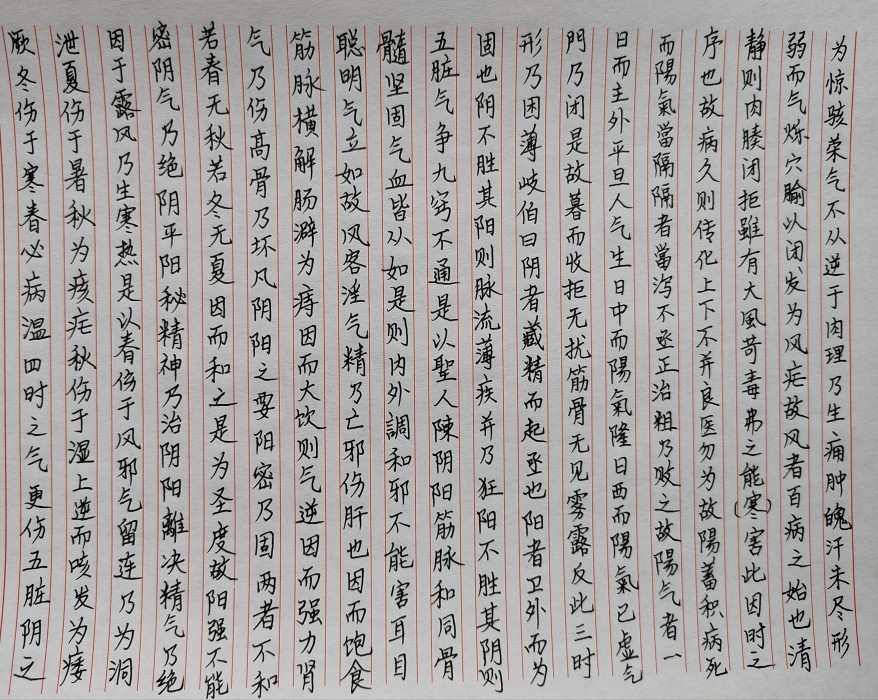 为惊骇荣气不从逆于肉理乃生痈肿魄汗未尽形
弱而气烁穴腧以闭发为风疟故风者百病之始也清
静则肉腠闭拒雖有大風苛毒弗之能(寒)害此因时之
序也故病久则传化上下不并良医勿为故陽蓄积病死
而陽氣當隔隔者當泻不亟正治粗乃败之故陽气者一
日而主外平旦人气生日中而陽氣隆日西而陽氣已虚气
門乃闭是故暮而收拒无扰筋骨无见雾露反此三时
形乃困薄岐伯曰阴者藏精而起亟也阳者卫外而为
固也阴不胜其阳则脉流薄疾并乃狂阳不胜其阴则
五脏气争九窍不通是以聖人陳阴阳筋脉和同骨
髓坚固气血皆从如是则内外調和邪不能害耳目
聪明气立如故风客淫气精乃亡邪伤肝也因而饱食
筋脉横解肠澼为痔因而大饮则气逆因而强力肾
气乃伤高骨乃坏凡阴阳之要阳密乃固两者不和
若春无秋若冬无夏因而和之是为圣度故阳强不能
密阴气乃绝阴平阳秘精神乃治阴阳離决精气乃绝
因于露风乃生寒热是以春伤于风邪气留连乃为洞
泄夏伤于暑秋为痎疟秋伤于湿上逆而咳发为痿
厥冬伤于寒春必病温四时之气更伤五脏阴之